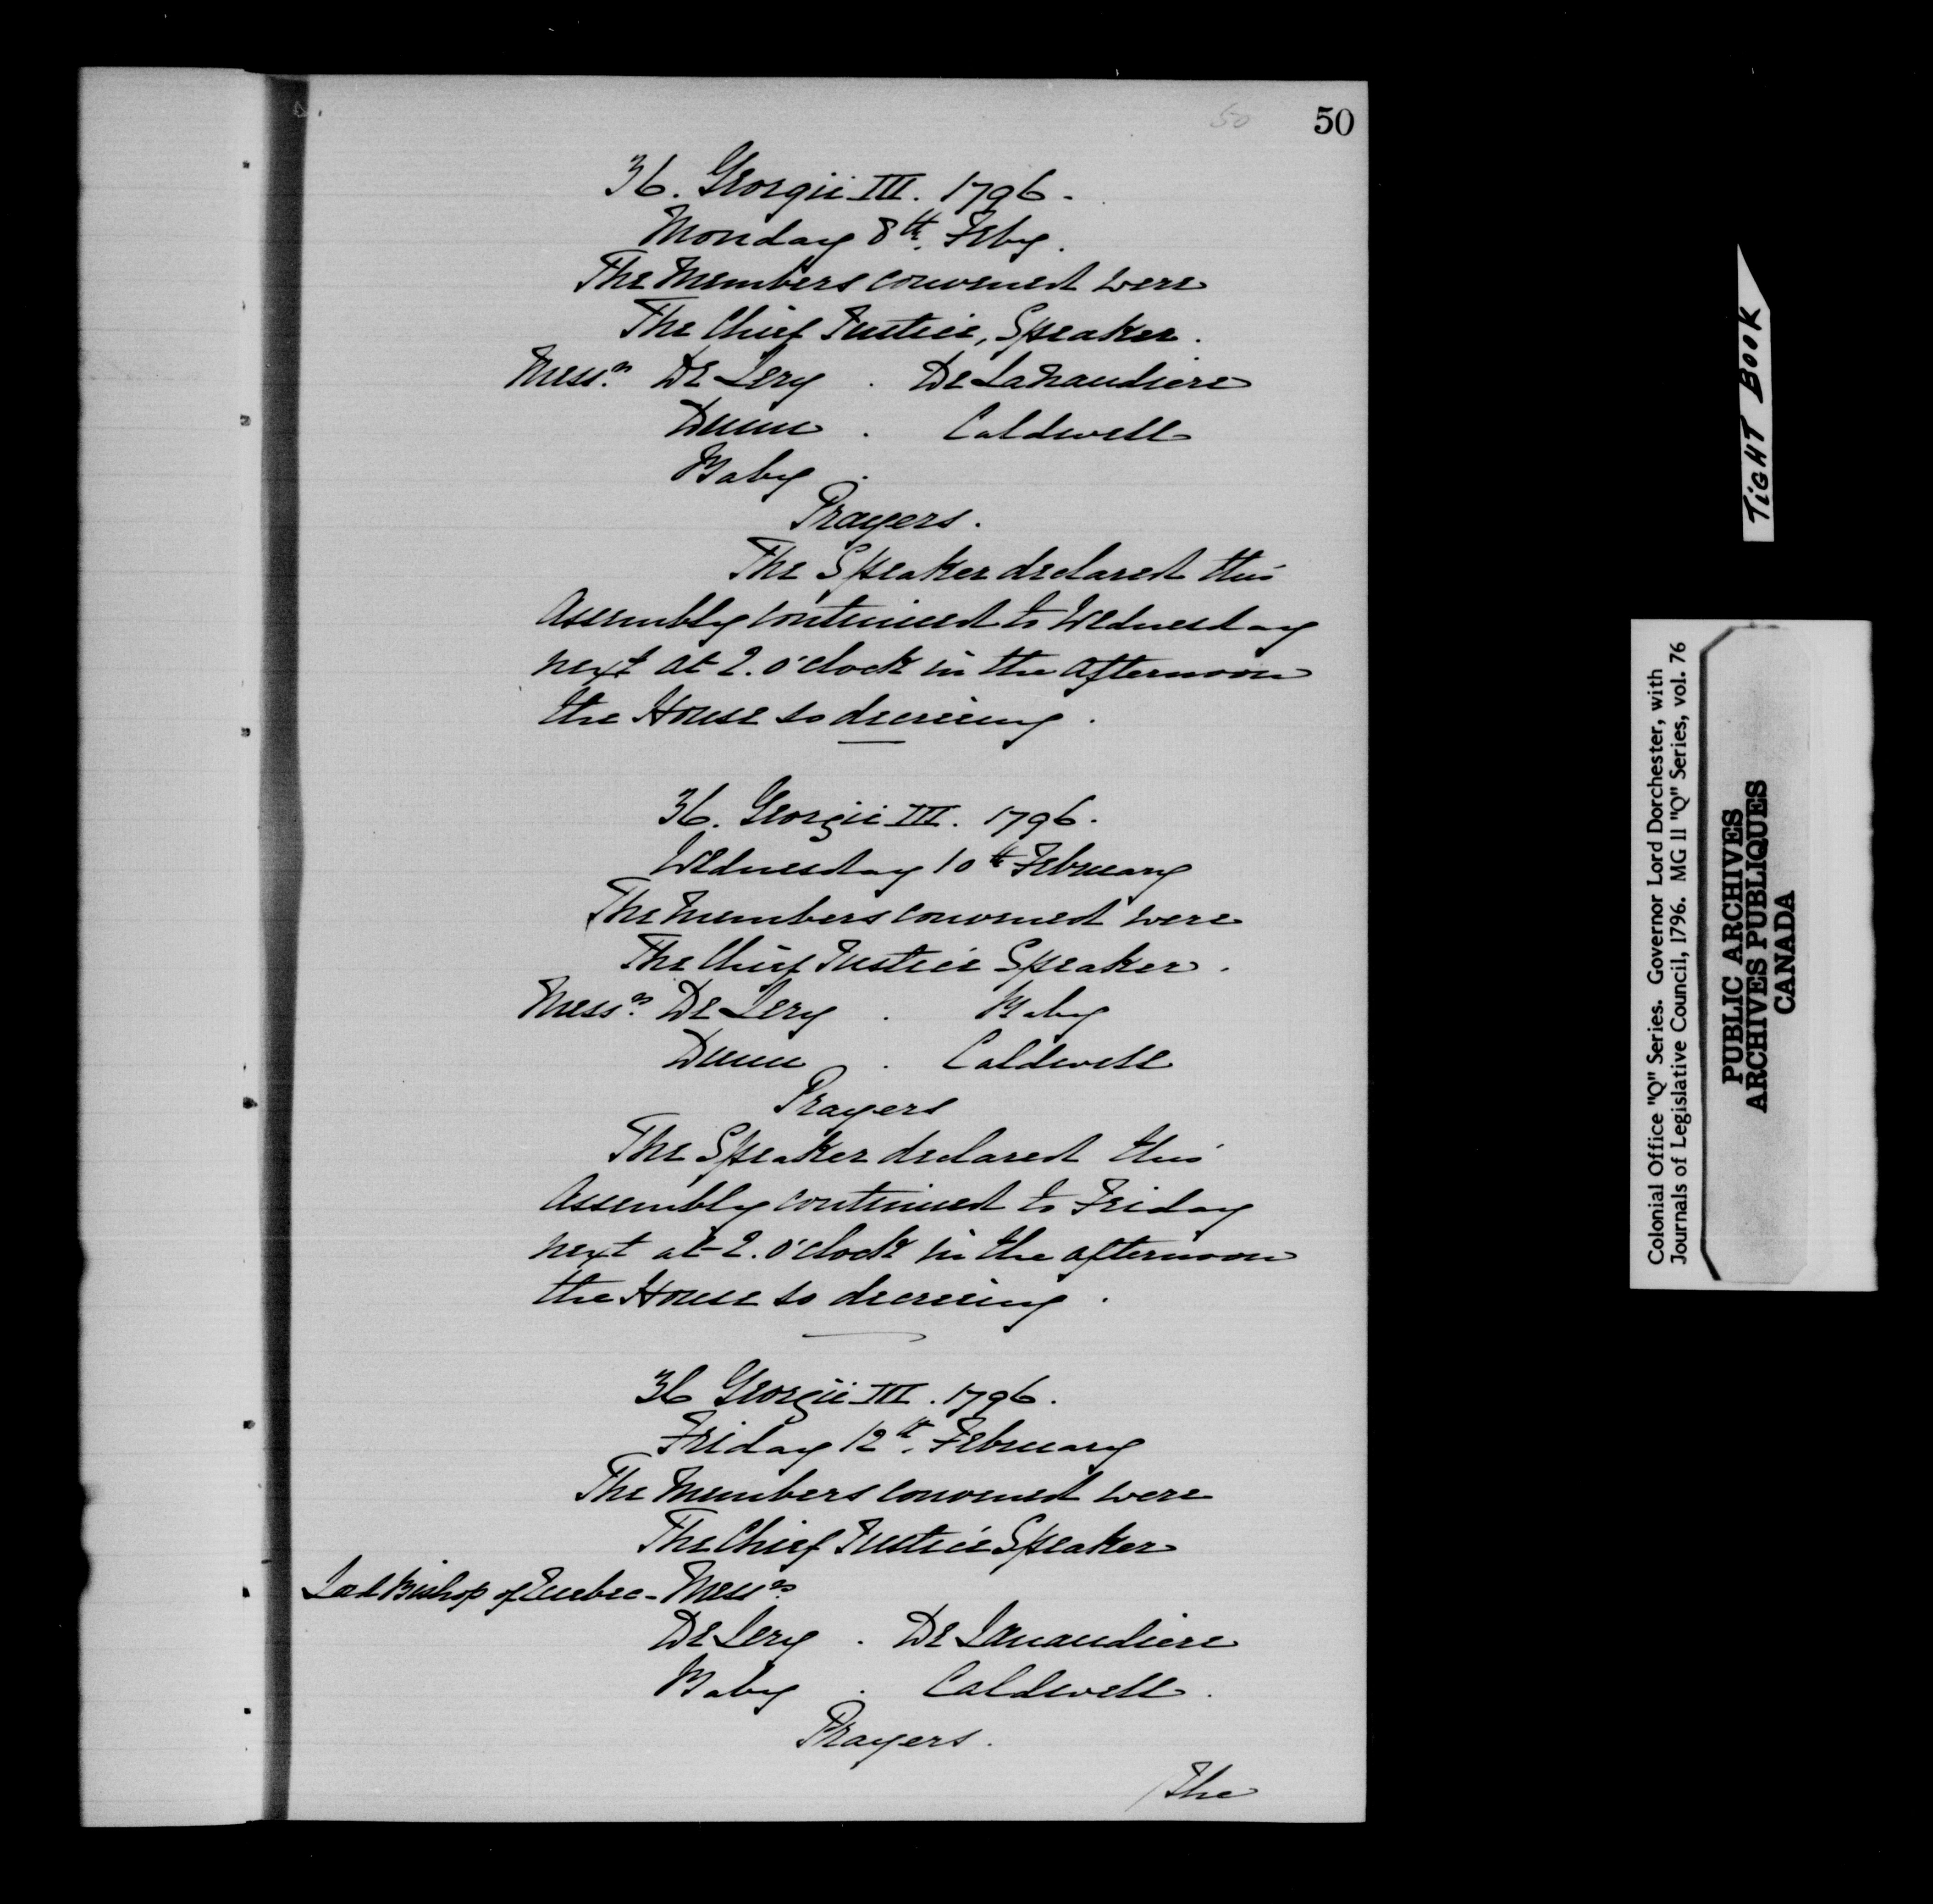 50
50
36. Georgii III. 1796.
Monday 8th. Feby.
The Members convened were
The Chief Justice, Speaker.
Messrs. De Lery . De Lanaudiere
Dunn . Caldwell
Baby .
Prayers.
The Speaker declared this
Assembly continued to Wednesday
next at 2. o'clock in the afternoon
the House so decreeing.
36. Georgii III. 1796.
Wednesday 10th February
The members convened were
The Chief Justice Speaker.
Messrs. De Lery . Baby
Dunn . Caldwell
Prayers
The Speaker declared this
Assembly continued to Friday
next at 2. o'clock in the afternoon
the House so decreeing.
36 Georgii III. 1796.
Friday 12th. February
The Members convened were
The Chief Justice Speaker
Lord Bishop of Quebec - Messrs.
De Lery . De Lanaudiere
Baby . Caldwell.
Prayers.
/The
TIGHT BOOK
Colonial Office "Q" Series. Governor Lord Dorchester, with
Journals of Legislative Council, 1796. MG 11 "Q" Series, vol. 76
PUBLIC ARCHIVES
ARCHIVES PUBLIQUES
CANADA